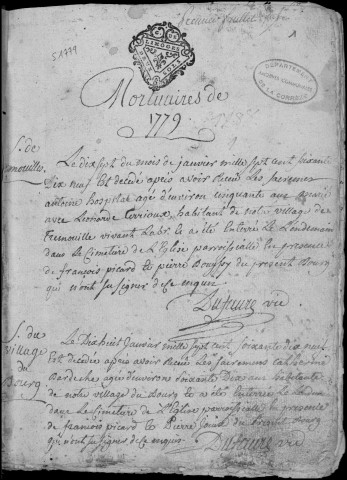 1
S1779
LIMOGES
DEPARTEMENT
DE LA CORREZE
Mortuaires de
1779
S. de
Fremouilles
Le dix sept du mois de janvier mille sept cent soixante
Dix neuf est decedé apres avoir Receu Les sacremens
antoine hospital agé d'environ cinquante ans marié
avec Leonarde Terrioux habitant de notre village de
Fremouille vivant Labr. Le a été Enterré Le Lendemain
dans Le Cimetiere de L'Eglise parroissialle En presence
de françois picard et pierre du present Bourg
qui n'ont su signer de ce enquis
Dufaure vic
S. du
village
du
Bourg
Le Dixhuit Janvier mille sept cent soixante dix neuf
Est decedée apres avoir Receu Les sacremens catherine
Bardeche agée d'environ soixante Dix ans habitante
de notre village du Bourg et a été enterrée Le Lendemain
dans Le Cimetiere de L'Eglise parroissialle En presence
de françois picard et Pierre du present Bourg
qui n'ont su signer de ce enquis
Dufaure vic